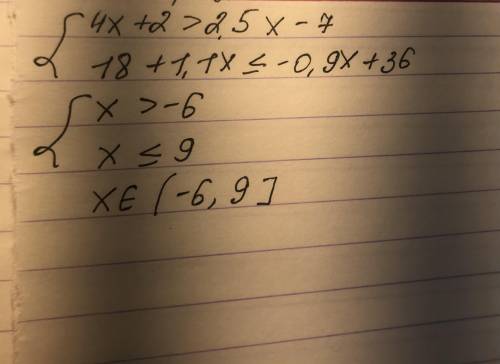 4x + 2 > 2,5x - 7
18 + 1,1x ≤ -0,9x + 36
x > -6
x ≤ 9
x ∈ (-6, 9]